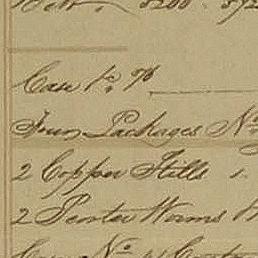 5200
Case No. 76
Four Packages No
2 Copper Stills 1.
2 Pewter Worms
Case No